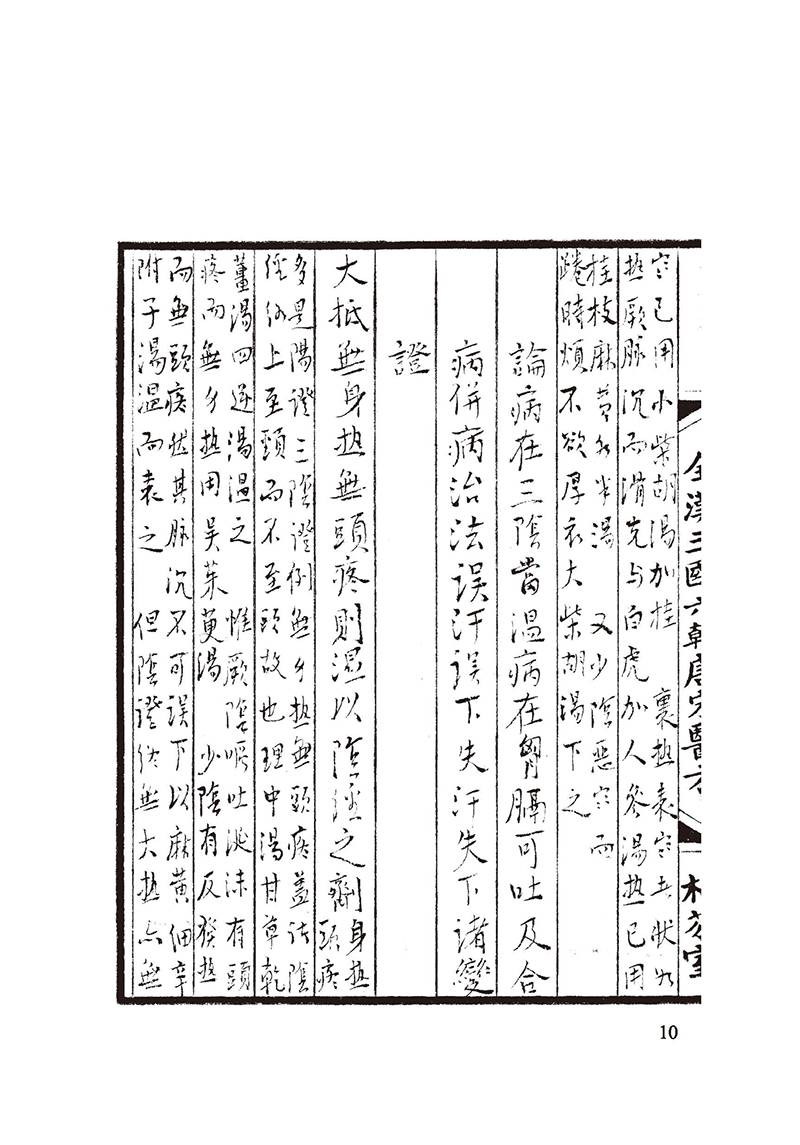 全漢三國六朝唐宋醫方
寒已用小柴胡湯加桂　裏热表寒其状如
热厥脉沉而滑先与白虎加人參湯热已用
桂枝麻黄各半湯　又少陰惡寒而
踡時煩不欲厚衣大柴胡湯下之
論病在三陰當温病在胷膈可吐及合
病併病治法误汗误下失汗失下諸變
證
大抵無身热無頭疼則温以陰經之劑
身热頭疼
多是陽證三陰證例無身热無頭疼蓋諸陰
經
上至頸而不至頭故也理中湯甘草乾
薑湯四逆湯温之　惟厥陰嘔吐涎沫有頭
疼而無身热用吴茱萸湯　少陰有反發热
而無頭疼状其脉沉不可误下以麻黄細辛
附子湯温而表之　但陰證
無大热亦無
10